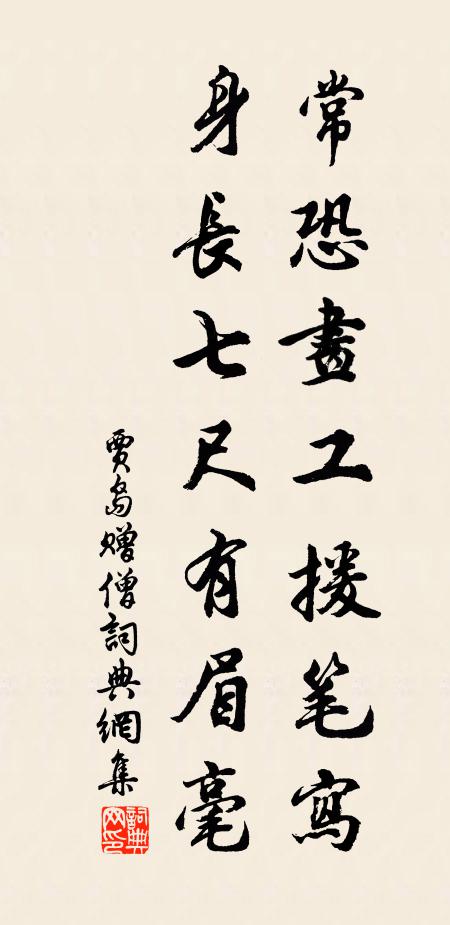 常恐畫工援笔寫
身長七尺有眉毫
賈島贈僧詞典網集
詞典
网印